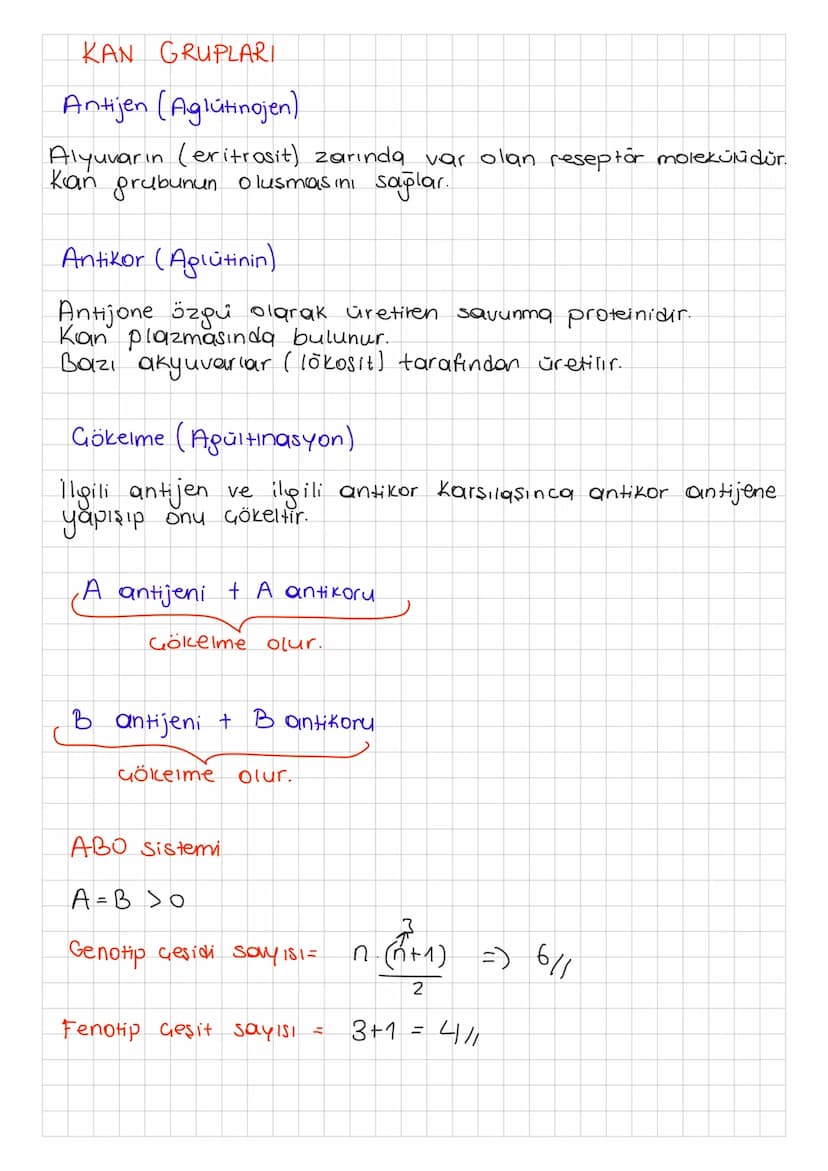 KAN GRUPLARI
Antijen (Aglütinojen)
Alyuvarın (eritrosit) zarında var olan reseptör molekülüdür.
Kan grubunun olusmasını sağlar.
Antikor (Aglütinin)
Antijene özgü olarak üretilen savunma proteinidir.
Kan plazmasında bulunur.
Bazı akyuvarlar (lökosit) tarafından üretilir.
Çökelme (Agültinasyon)
İlgili antijen ve ilgili antikor karsılaşınca antikor antijene
yapışıp onu çökeltir.
A antijeni + A antikoru
Çökelme olur.
B antijeni + B antikoru
Çökelme olur.
ABO sistemi
A = B > O
3
Genotip çeşidi sayısı = n.(n+1) => 6//
2
Fenotip çeşit sayısı = 3+1 = 4//